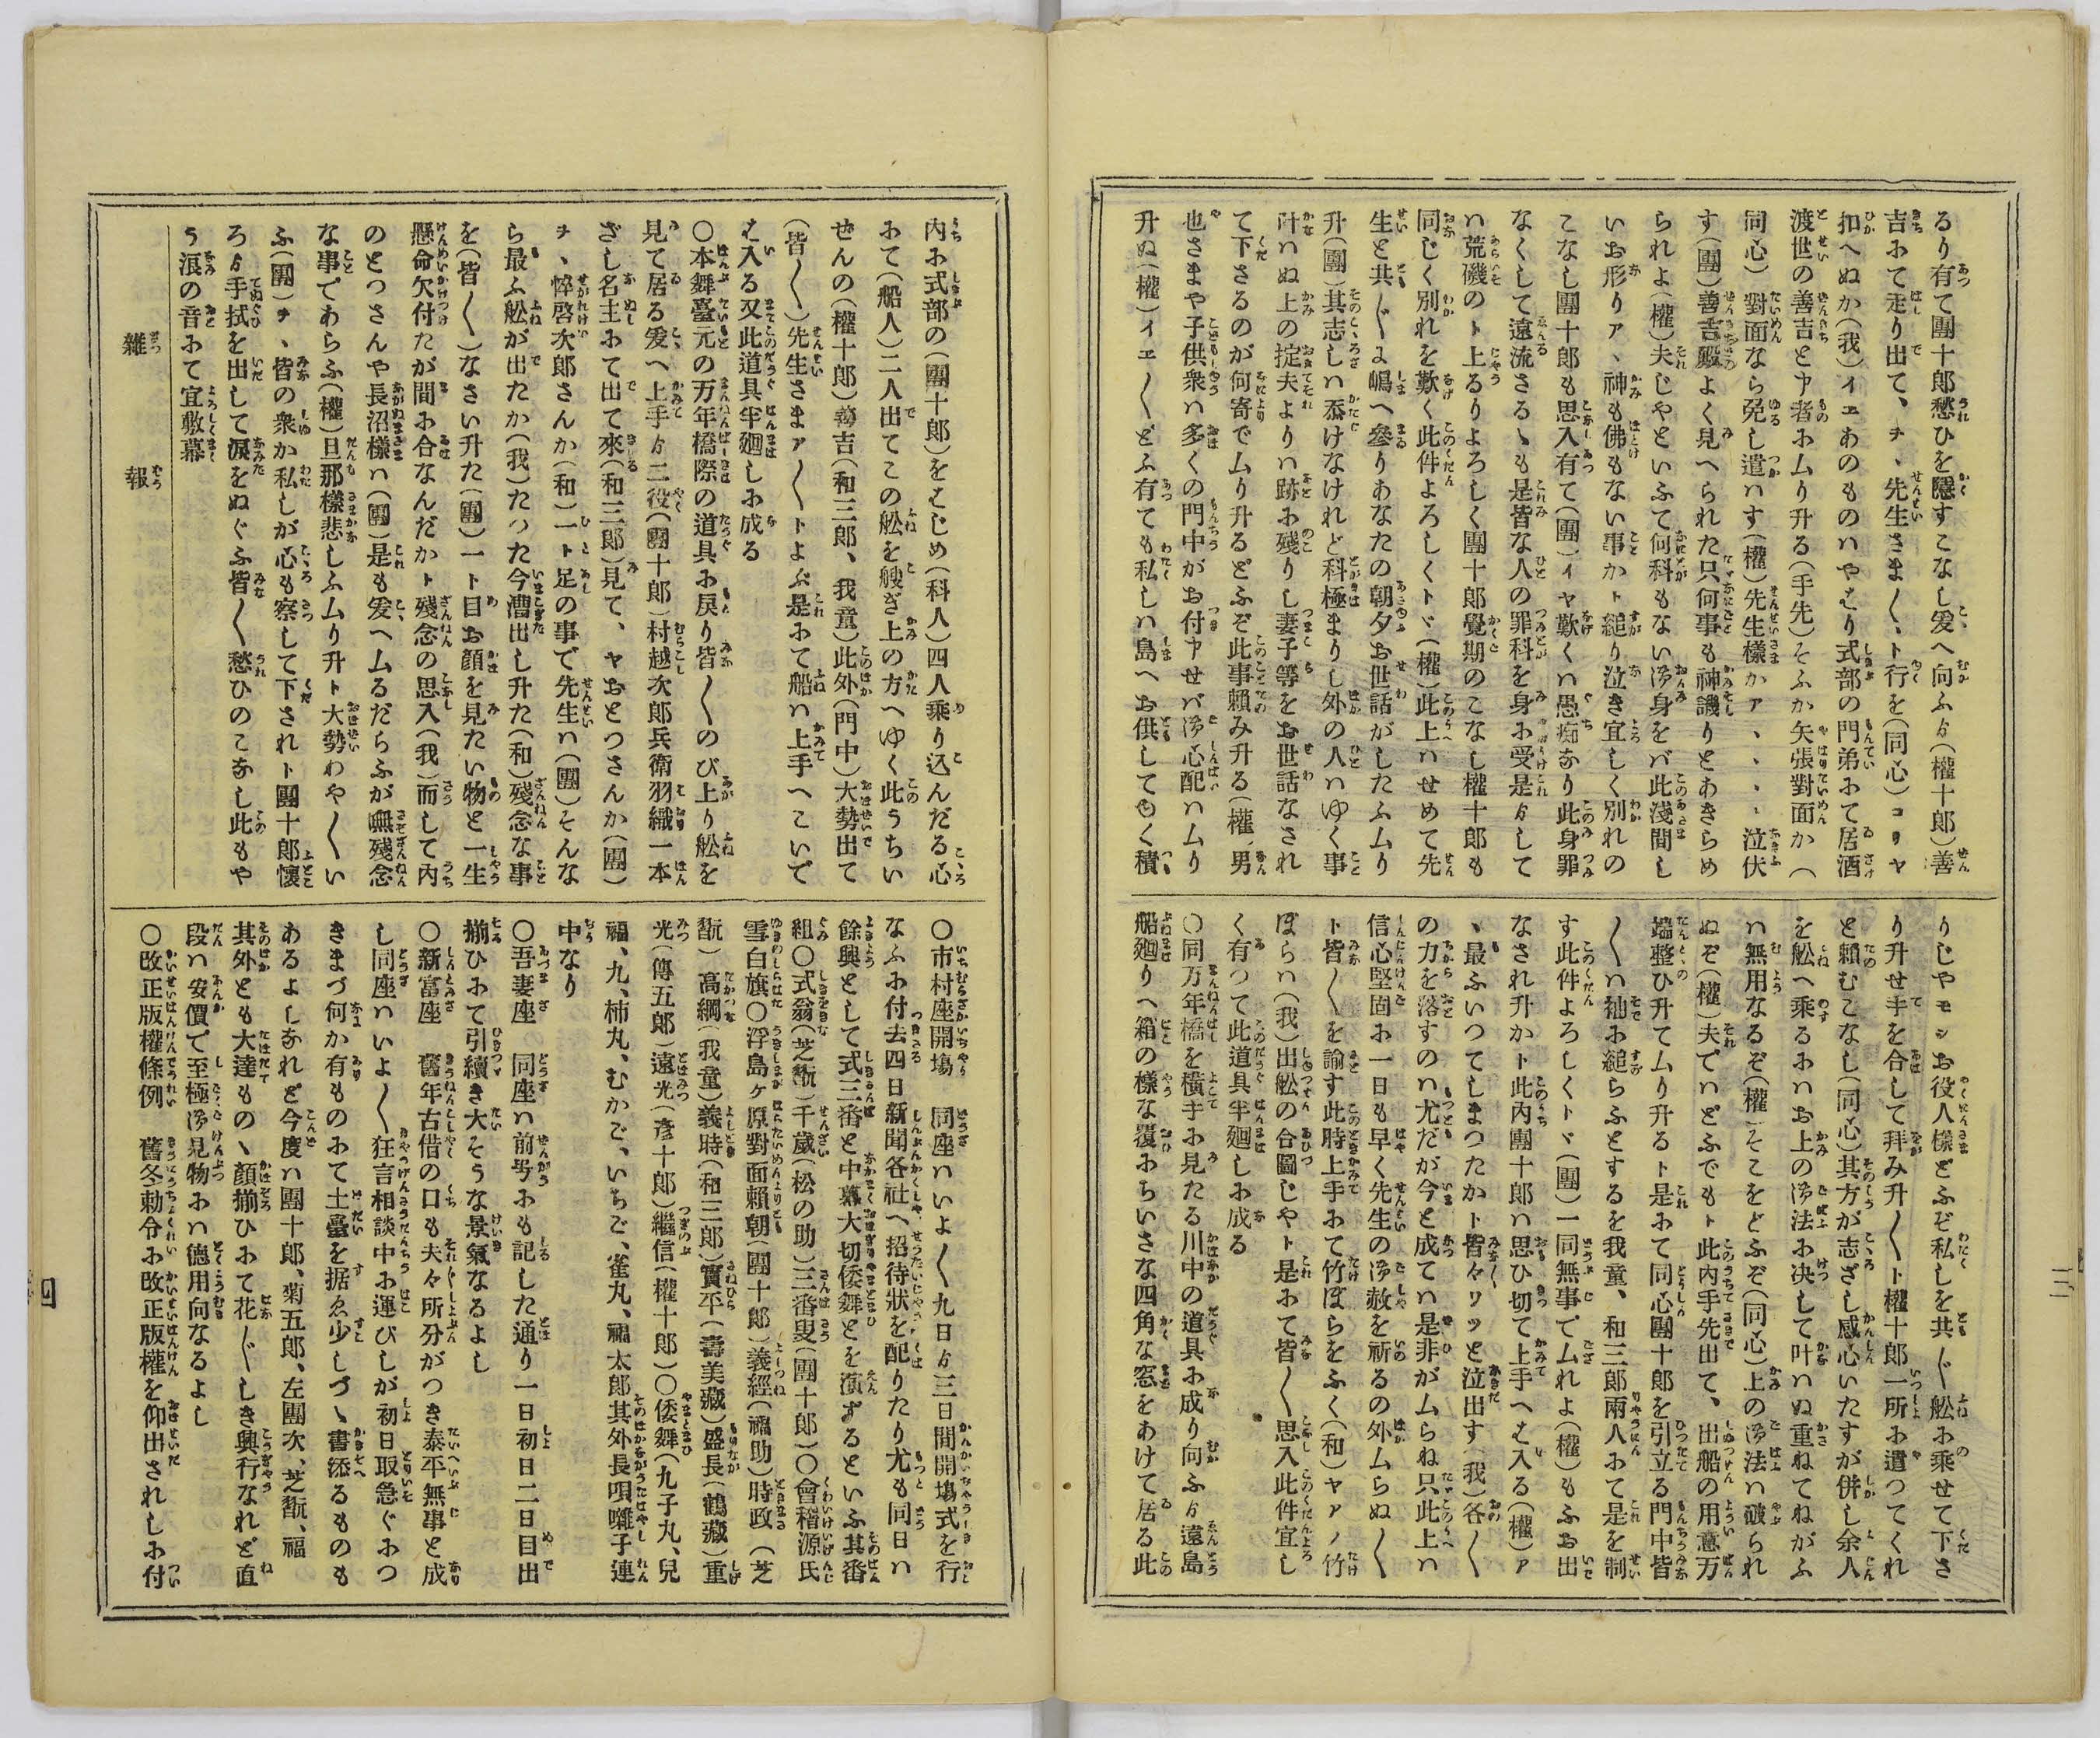 るり有て團十郎愁ひを隱すこなし爰へ向ふゟ(權十郎)善
吉にて走り出て、ヲヽ先生さま〱、ト行を(同心)コリヤ
扣へぬか(我)イエあのものハやはり式部の門弟にて居酒
渡世の善吉と申者にム り升る(手先)そふか矢張對面か(
同心)對面なら免し遣ハす(權)先生樣かアヽヽヽ泣伏
す(團)善吉殿よく見へられた只何事も神譏りとあきらめ
られよ(權)夫じやといふて何科もない御身をバ此淺間し
いお形りアヽ神も佛もない事かト縋り泣き宜しく別れの
こなし團十郎も思入有て(團)イヤ歎くハ愚痴なり此身罪
なくして遠流さるゝも是皆な人の罪科を身に受是ゟして
ハ荒磯のト上るりよろしく團十郎覺期のこなし權十郎も
同じく別れを歎く此件よろしくトヾ(權)此上ハせめて先
生と共〲よ嶋へ參りあなたの朝夕お世話がしたふムり
升(團)其志しハ忝けなけれど科極まりし外の人ハゆく事
叶ハぬ上の掟夫よりハ跡に殘りし妻子等をお世話なされ
て下さるのが何寄でムり升るどふぞ此事賴み升る(權)男
也さまや子供衆ハ多くの門中がお付申せバ御心配ハムり
升ぬ(權)イエ〱どふ有ても私しハ島へお供してもく積
りじやモシお役人樣どふぞ私しを共〲舩に乘せて下さ
り升せ手を合して拜み升〱ト權十郎一所に遣つてくれ
と賴むこなし(同心)其方が志ざし感心いたすが併し余人
を舩へ乘るにハお上の御法に决して叶ハぬ重ねてねがふ
ハ無用なるぞ(權)そこをどふぞ(同心)上の御法ハ破られ
ぬぞ(權)夫でハどふでもト此内手先出て、出船の用意万
端整ひ升てムり升るト是にて同心團十郎を引立る門中皆
〱ハ袖に縋らふとするを我童、和三郎兩人にて是を制
す此件よろしくトヾ(團)一同無事でムれよ(權)もふお出
なされ升かト此内團十郎ハ思ひ切て上手へは入る(權)ア
ヽ最ふいつてしまつたかト皆々ワツと泣出す(我)各〱
の力を落すのハ尤だが今と成てハ是非がムらね只此上ハ
信心堅固に一日も早く先生の御赦を祈るの外ムらぬ〱
ト皆〱を諭す此時上手にて竹ぼらをふく(和)ヤアノ竹
ぼらハ(我)出舩の合圖じやト是にて皆〱思入此件宜し
く有つて此道具半廻しに成る
〇同万年橋を橫手に見たる川中の道具に成り向ふゟ遠島
船廻りへ箱の樣な覆にちいさな四角な窓をあけて居る此
内に式部の(團十郎)をはじめ(科人)四人乘り込んだる心
にて(船人)二人出てこの舩を艘ぎ上の方へゆく此うちい
ぜんの(權十郎)善吉(和三郎、我童)此外(門中)大勢出て
(皆〱)先生さまア〱トよぶ是にて船ハ上手へこいで
は入る又此道具半廻しに成る
〇本舞臺元の万年橋際の道具に戾り皆〱のび上り舩を
見て居る爰へ上手ゟ二役(團十郎)村越次郎兵衛羽織一本
ざし名主にて出て來(和三郎)見て、ヤおとつさんか(團)
ヲヽ悴啓次郎さんか(和)一ト足の事で先生ハ(團)そんな
ら最ふ舩が出たか(我)たつた今漕出し升た(和)殘念な事
を(皆〱)なさい升た(團)一ト目お顏を見たい物と一生
懸命欠付たが間に合なんだかト殘念の思入(我)而して内
のとつさんや長沼樣ハ(團)是も爰へムるだらふが嘸殘念
な事であらふ(權)旦那樣悲しふムり升ト大勢わや〱い
ふ(團)ヲヽ皆の衆か私しが心も察して下されト團十郎懷
ろゟ手拭を出して淚をぬぐふ皆〱愁ひのこなし此もや
う浪の音にて宜敷幕
雜報
〇市村座開塲　同座ハいよ〱九日ゟ三日間開塲式を行
なふに付去四日新聞各社へ招待狀を配りたり尤も同日ハ
餘興として式三番と中幕大切倭舞とを演ずるといふ其番
組〇式翁(芝翫)千歲(松の助)三番叟(團十郎)〇會稽源氏
雪白旗〇浮島ヶ原對面賴朝(團十郎)義經(福助)時政(芝
翫)高綱(我童)義時(和三郎)實平(壽美藏)盛長(鶴藏)重
光(傳五郎)遠光(彥十郎)繼信(權十郎)〇倭舞(九子丸、兒
福、九、柿丸、むかご、いちご、雀丸、福太郎其外長唄囃子連
中なり
〇吾妻座　同座ハ前号にも記した通り一日初日二日目出
揃ひにて引續き大そうな景氣なるよし
〇新富座　舊年古借の口も夫々所分がつき泰平無事と成
し同座ハいよ〱狂言相談中に運びしが初日取急ぐにつ
きまづ何か有ものにて土臺を据ゑ少しづゝ書添るものも
あるよしなれど今度ハ團十郎、菊五郎、左團次、芝翫、福
其外とも大達ものゝ顏揃ひにて花〲しき興行なれど直
段ハ安價で至極御見物にハ德用向なるよし
〇改正版權條例　舊冬勅令に改正版權を仰出されしに付
三
四